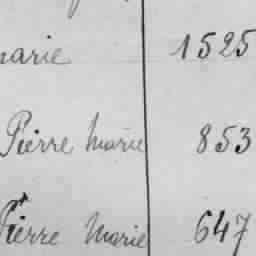 marie 1525
Pierre marie 853
Pierre Marie 647